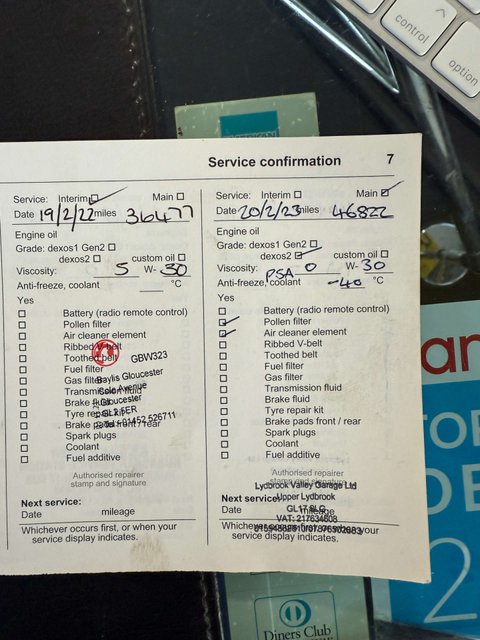 control
option
Service confirmation 7
Service: Interim Main
Date 19/2/22 miles 36477
Engine oil
Grade: dexos1 Gen2
dexos2 custom oil
Viscosity: 5 W- 30
Anti-freeze, coolant °C
Yes
Battery (radio remote control)
Pollen filter
Air cleaner element
Ribbed V-belt
Toothed belt
GBW323
Fuel filter
Gas filter
Baylis Gloucester
Transmission fluid
Cole Avenue
Brake fluid
Gloucester
Tyre repair kit
GL2 5ER
Brake pads front / rear
01452 526711
Spark plugs
Coolant
Fuel additive
Authorised repairer
stamp and signature
Next service:
Date mileage
Whichever occurs first, or when your
service display indicates.
Service: Interim Main
Date 20/2/23 miles 46822
Engine oil
Grade: dexos1 Gen2
dexos2 custom oil
Viscosity: 0 W- 30
PSA
Anti-freeze, coolant -40 °C
Yes
Battery (radio remote control)
Pollen filter
Air cleaner element
Ribbed V-belt
Toothed belt
Fuel filter
Gas filter
Transmission fluid
Brake fluid
Tyre repair kit
Brake pads front / rear
Spark plugs
Coolant
Fuel additive
Authorised repairer
stamp and signature
Lydbrook Valley Garage Ltd
Next service:
Upper Lydbrook
Date mileage
GL17 9LG
VAT: 217634608
Whichever occurs first, or when your
service display indicates.
an
TOP
DE
2
Diners Club